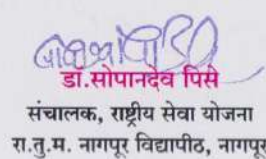 डॉ.सोपानदेव पिसे
संचालक, राष्ट्रीय सेवा योजना
रा.तु.म. नागपूर विद्यापीठ, नागपूर